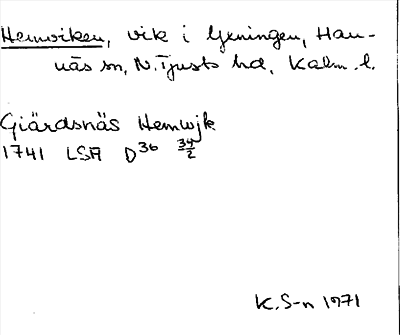 Hemviken, vik i Gxningen, Han-
näs sn, N. Tjusts hd, Kalm. l.
Giärdsnäs Hemwjk
1741 LSA D36 34/2
K. S-n 1971